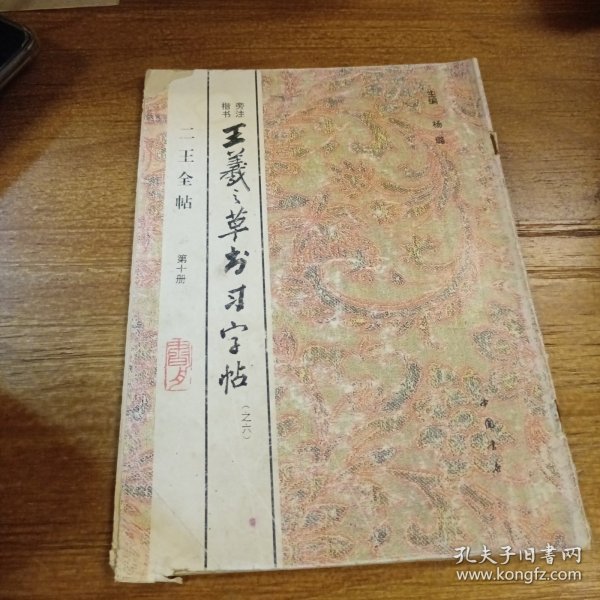 主编 杨璐
旁注
楷书
王羲之草书习字帖
(之六)
二王全帖
第十册
中国书店
孔夫子旧书网
www.kongfz.com